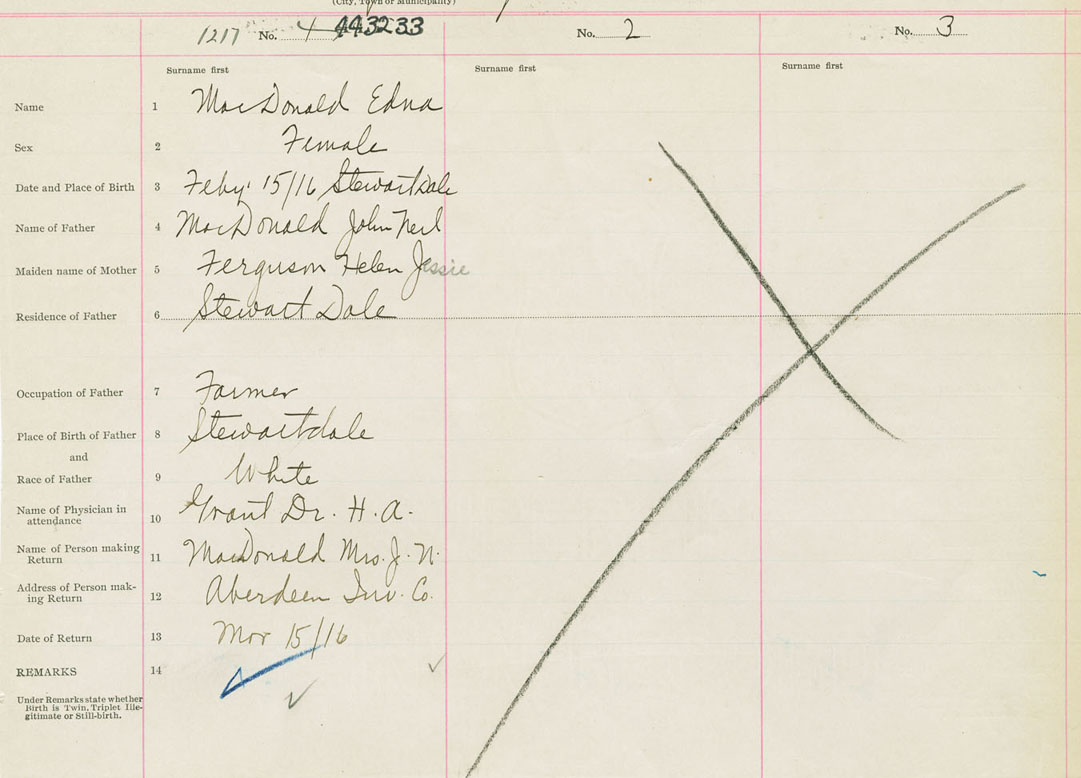 (City, Town or Municipality)
1217 No. 4 443233
No. 2
No. 3
Surname first
Surname first
Surname first
Name 1 MacDonald Edna
Sex 2 Female
Date and Place of Birth 3 Feby 15/16 Stewartdale
Name of Father 4 MacDonald John Neil
Maiden name of Mother 5 Ferguson Helen Jessie
Residence of Father 6 Stewart Dale
Occupation of Father 7 Farmer
Place of Birth of Father 8 Stewartdale
and
Race of Father 9 White
Name of Physician in
attendance 10 Grant Dr. H. A.
Name of Person making
Return 11 MacDonald Mrs. J. N.
Address of Person mak-
ing Return 12 Aberdeen Inv. Co.
Date of Return 13 Mar 15/16
REMARKS 14
Under Remarks state whether
Birth is Twin, Triplet Ille-
gitimate or Still-birth.